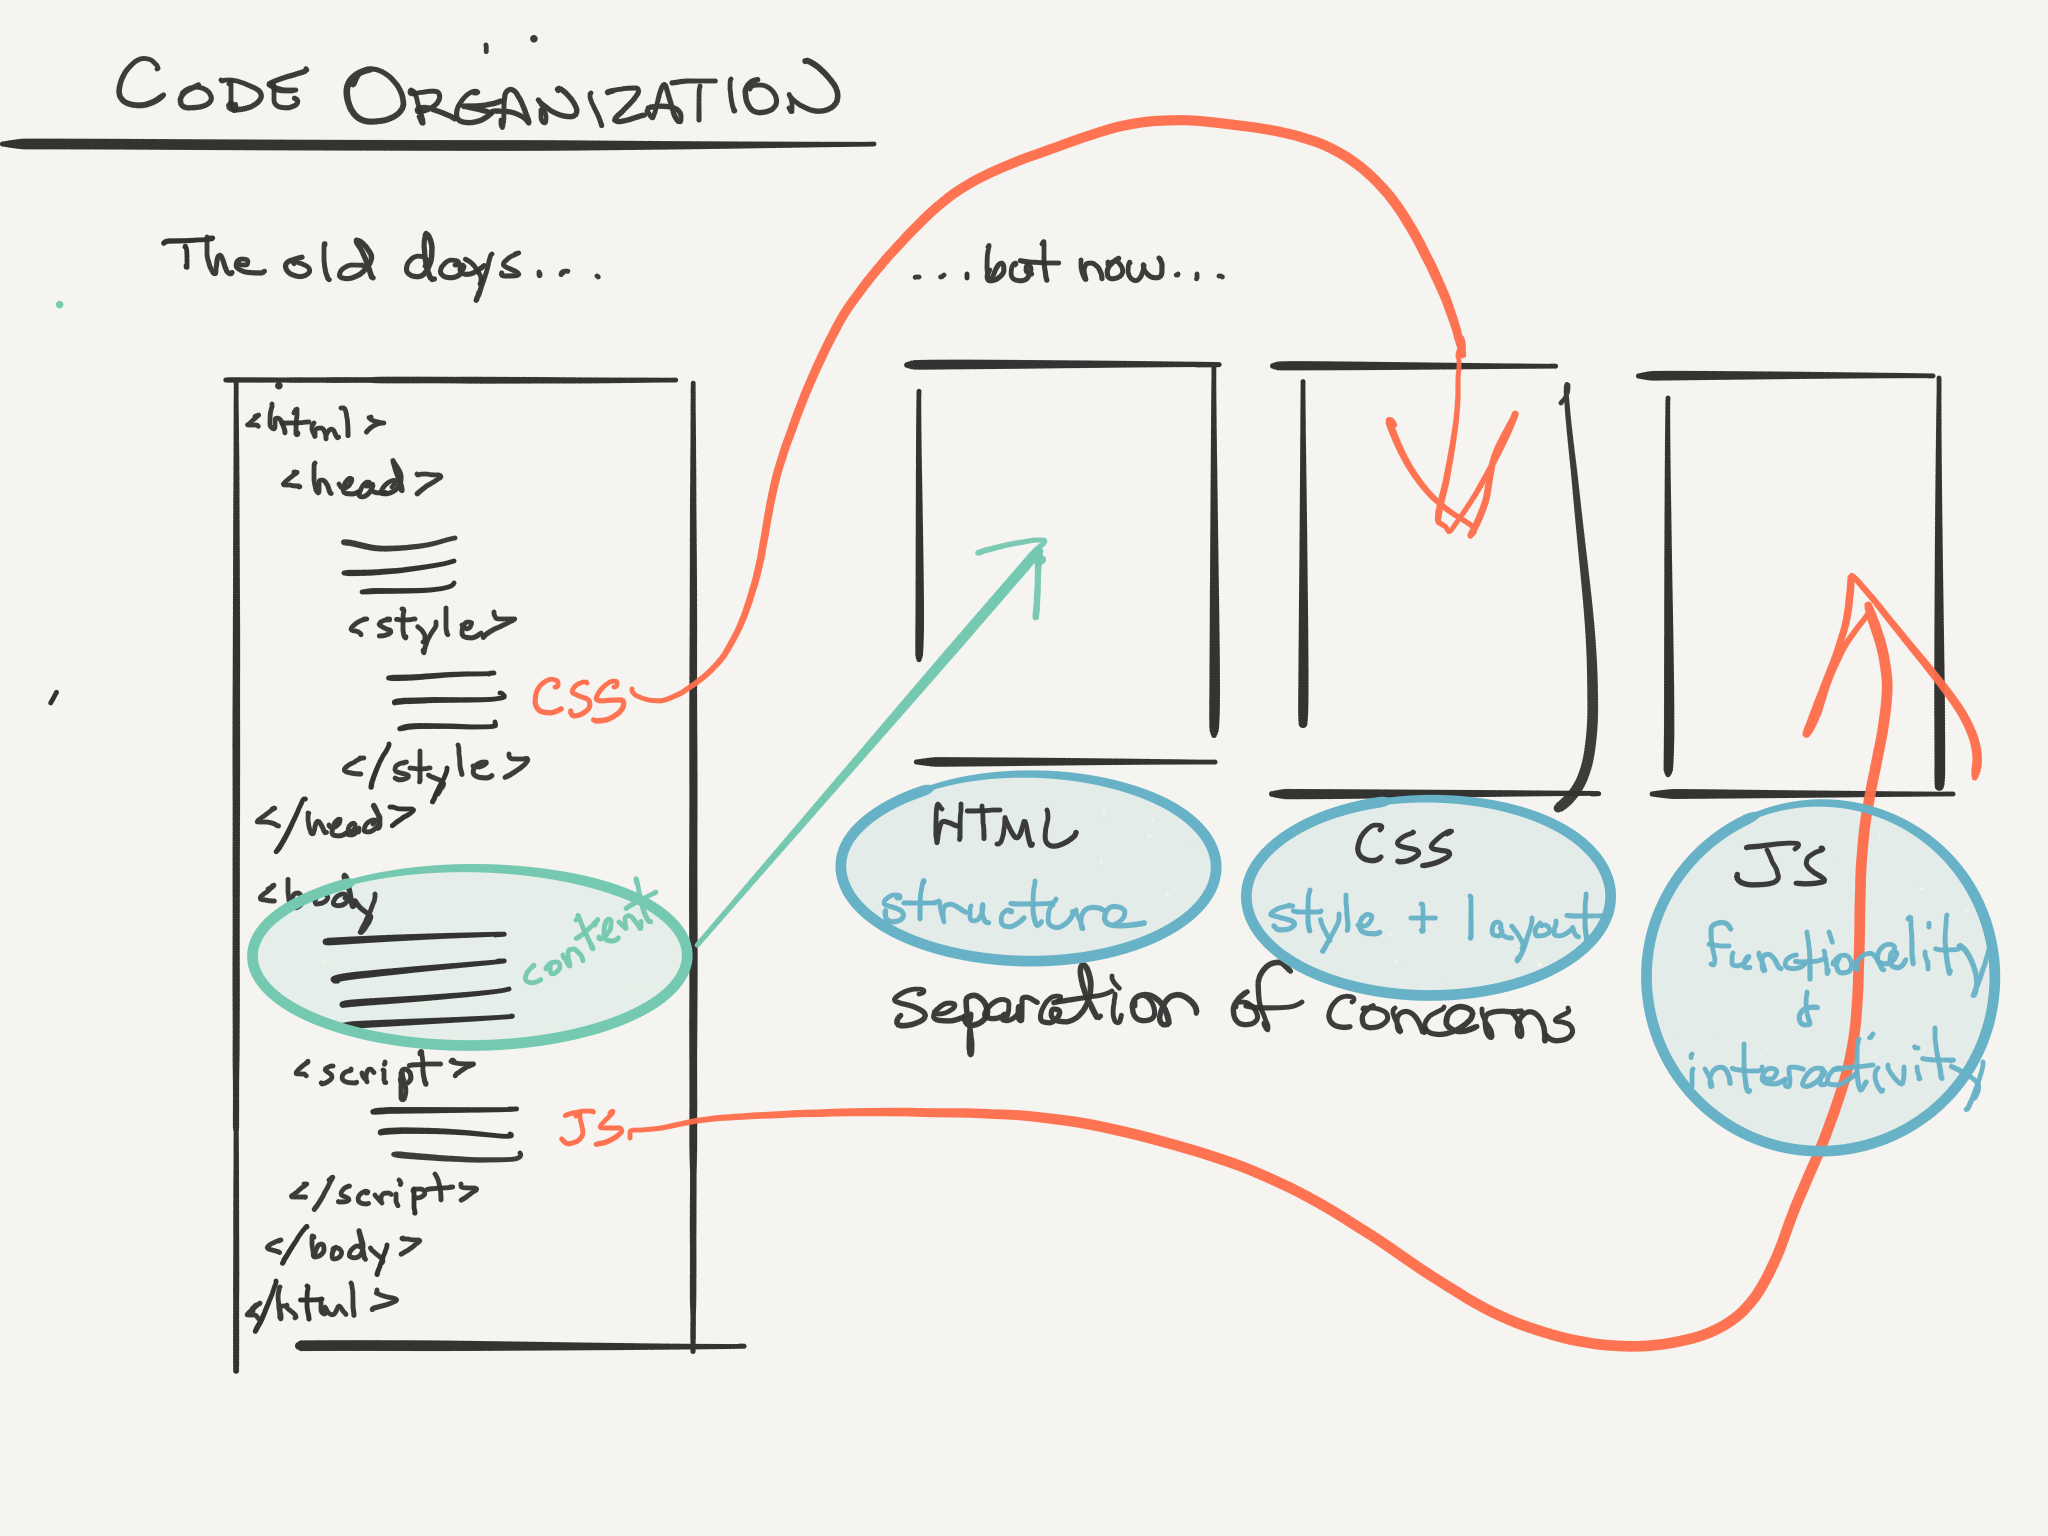 CODE ORGANIZATION
The old days...
...but now...
<html>
<head>
<style>
CSS
</style>
</head>
<body
content
<script>
JS
</script>
</body>
</html>
HTML
structure
CSS
style + layout
JS
functionality
&
interactivity
separation of concerns